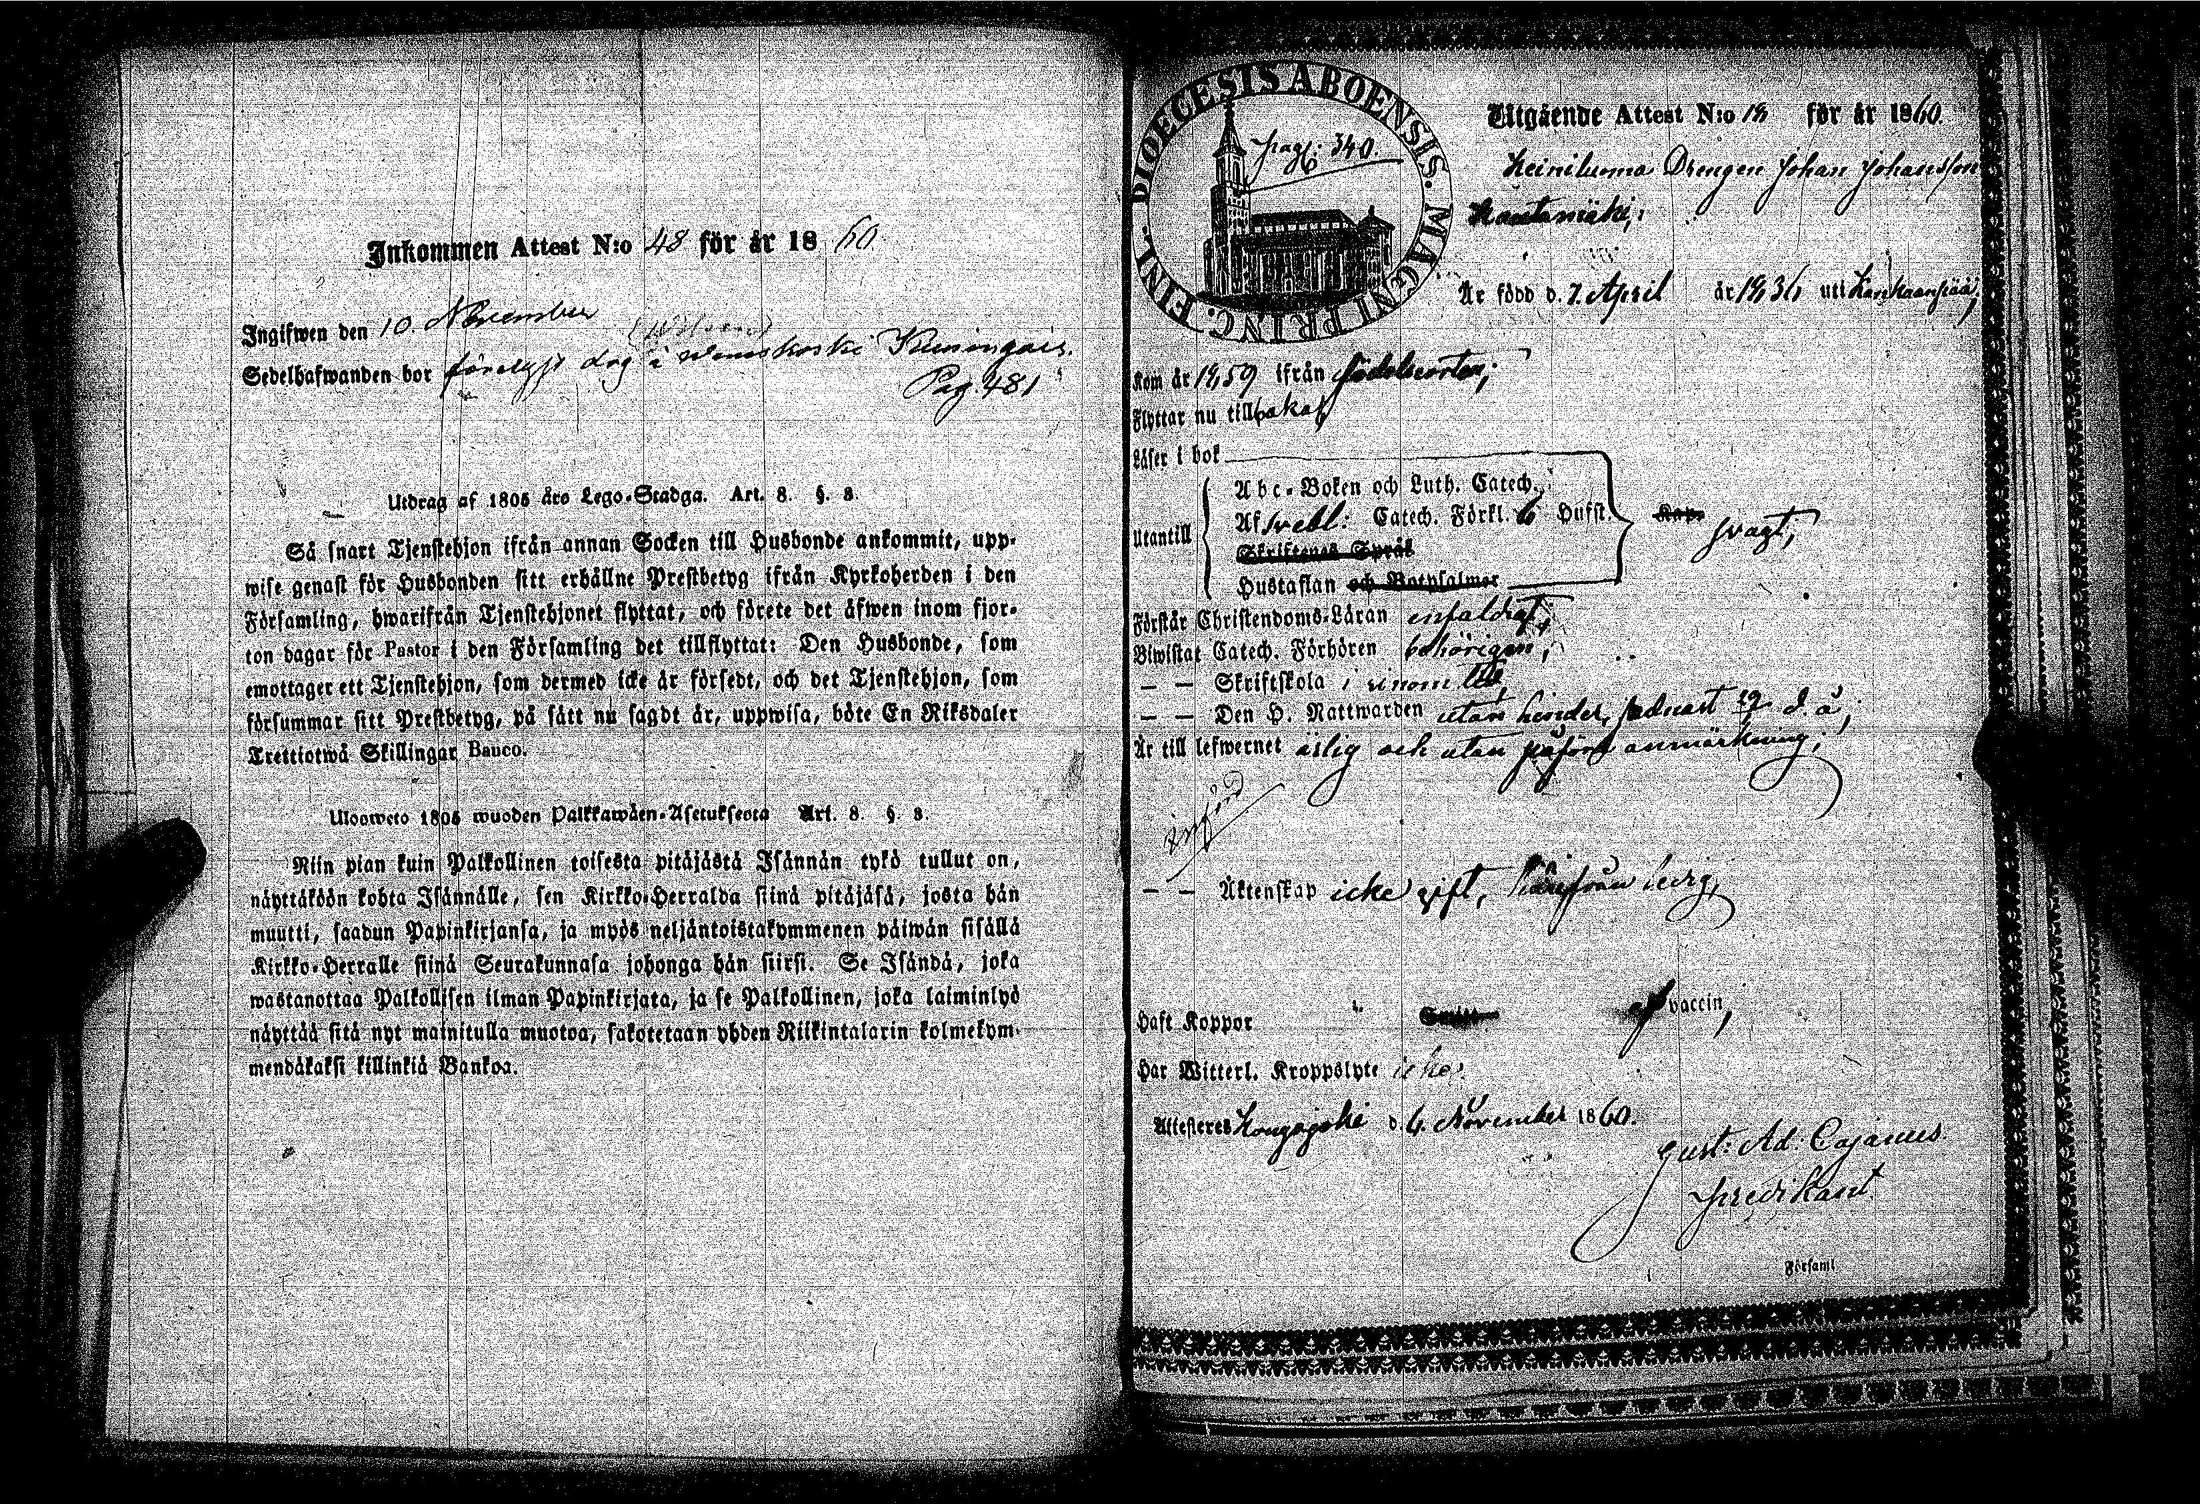 Inkommen Attest N:o 48 för år 1860
Ingifwen den 10 November
Sedelhafwanden bor
Pag. 481
Utdrag af 1805 års Lego-Stadga. Art. 8. §. 8.
Så snart Tjenstehjon ifrån annan Socken till Husbonde ankommit, upp-
wise genast för Husbonden sitt erhållne Prestbetyg ifrån Kyrkoherden i den
Församling, hwarifrån Tjenstehjonet flyttat, och förete det äfwen inom fjor-
ton dagar för Pastor i den Församling det tillflyttat: Den Husbonde, som
emottager ett Tjenstehjon, som dermed icke är försedt, och det Tjenstehjon, som
försummar sitt Prestbetyg, på sätt nu sagdt är, uppwisa, böte En Riksdaler
Trettiotwå Skillingar Banco.
Ulosweto 1805 wuoden Palkkawäen-Asetuksesta Art. 8. §. 8.
Niin pian kuin Palkollinen toisesta pitäjästä Isännän tykö tullut on,
näyttäköön kohta Isännälle, sen Kirkko-Herralda siinä pitäjäsä, josta hän
muutti, saadun Papinkirjansa, ja myös neljäntoistakymmenen päiwän sisällä
Kirkko-Herralle siinä Seurakunnasa johonga hän siirsi. Se Isändä, joka
wastanottaa Palkollisen ilman Papinkirjata, ja se Palkollinen, joka laiminlyö
näyttää sitä nyt mainitulla muotoa, sakotetaan yhden Riikintalarin kolmekym-
mendäkaksi killinkiä Bankoa.
DIOECESIS ABOENSIS. MAGNI PRINC. FINL.
pag: 340.
Utgående Attest N:o 18 för år 1860.
Heiniluoma Drengen Johan Johansson
Är född d. 7. April år 1836 uti
Kom år 1859 ifrån födelseorten;
Flyttar nu tillbaka;
Läser i bok
Utantill
Abc-Boken och Luth. Catech.
Af Svebl: Catech. Förkl. 6 Hufst.
Kap.
svagt;
Skriftenes Språk
Hustaflan och Botpsalmer
Förstår Christendoms-Läran enfaldigt;
Biwistat Catech. Förhören behörigen;
— — Skriftskola i sinom tid,
— — Den H. Nattwarden utan hinder, sednast d. å;
Är till lefwernet ärlig och utan påförd anmärkning;
införd
— — Äktenskap icke gift, härifrån ledig,
Haft Koppor vaccin,
Har Witterl. Kroppslyte icke.
Attesteres Kongajoki d. 6. November 1860.
Gust: Ad. Cajanus.
predikant
Församl.